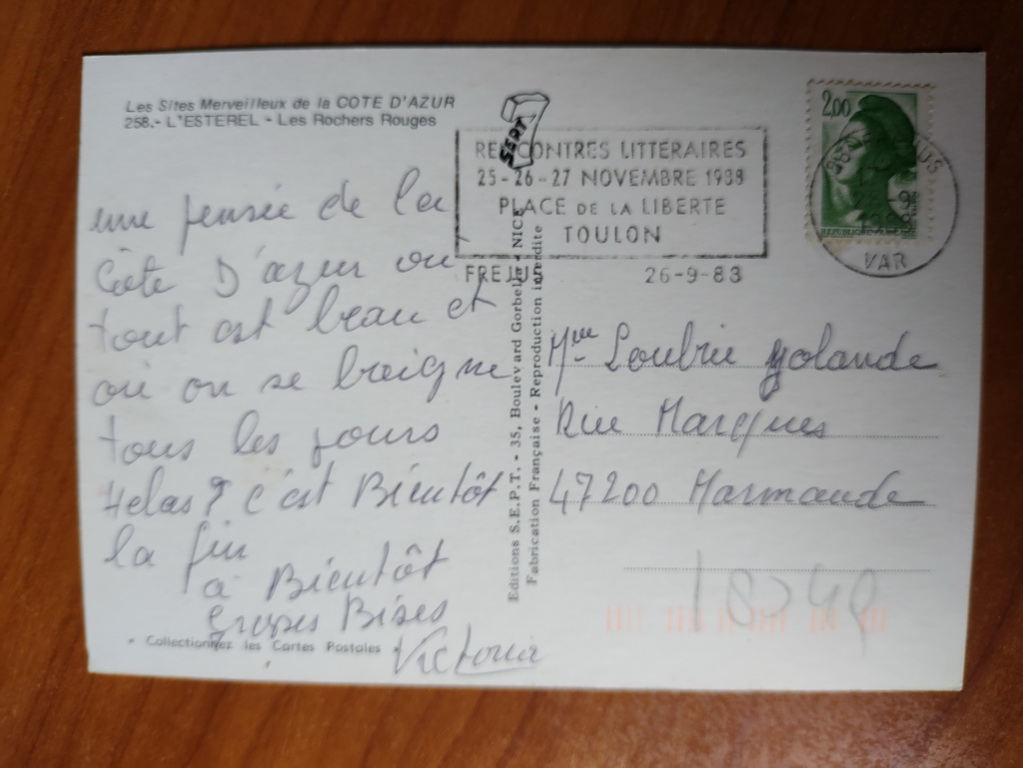 Les Sites Merveilleux de la COTE D'AZUR
258.- L'ESTEREL - Les Rochers Rouges
une pensée de la
Côte D'azur ou
tout est beau et
où on se baigne
tous les jours
Helas? c'est Bientôt
la fin
à Bientôt
Grosses Bises
Victoria
* Collectionnez les Cartes Postales *
SEPT
Editions S.E.P.T. - 35, Boulevard Gorbella - NICE
Fabrication Française - Reproduction interdite
RENCONTRES LITTERAIRES
25-26-27 NOVEMBRE 1988
PLACE DE LA LIBERTE
TOULON
FREJUS 26-9-83
2,00
VAR
Mme Loubrie Yolande
Rue Marques
47200 Marmande